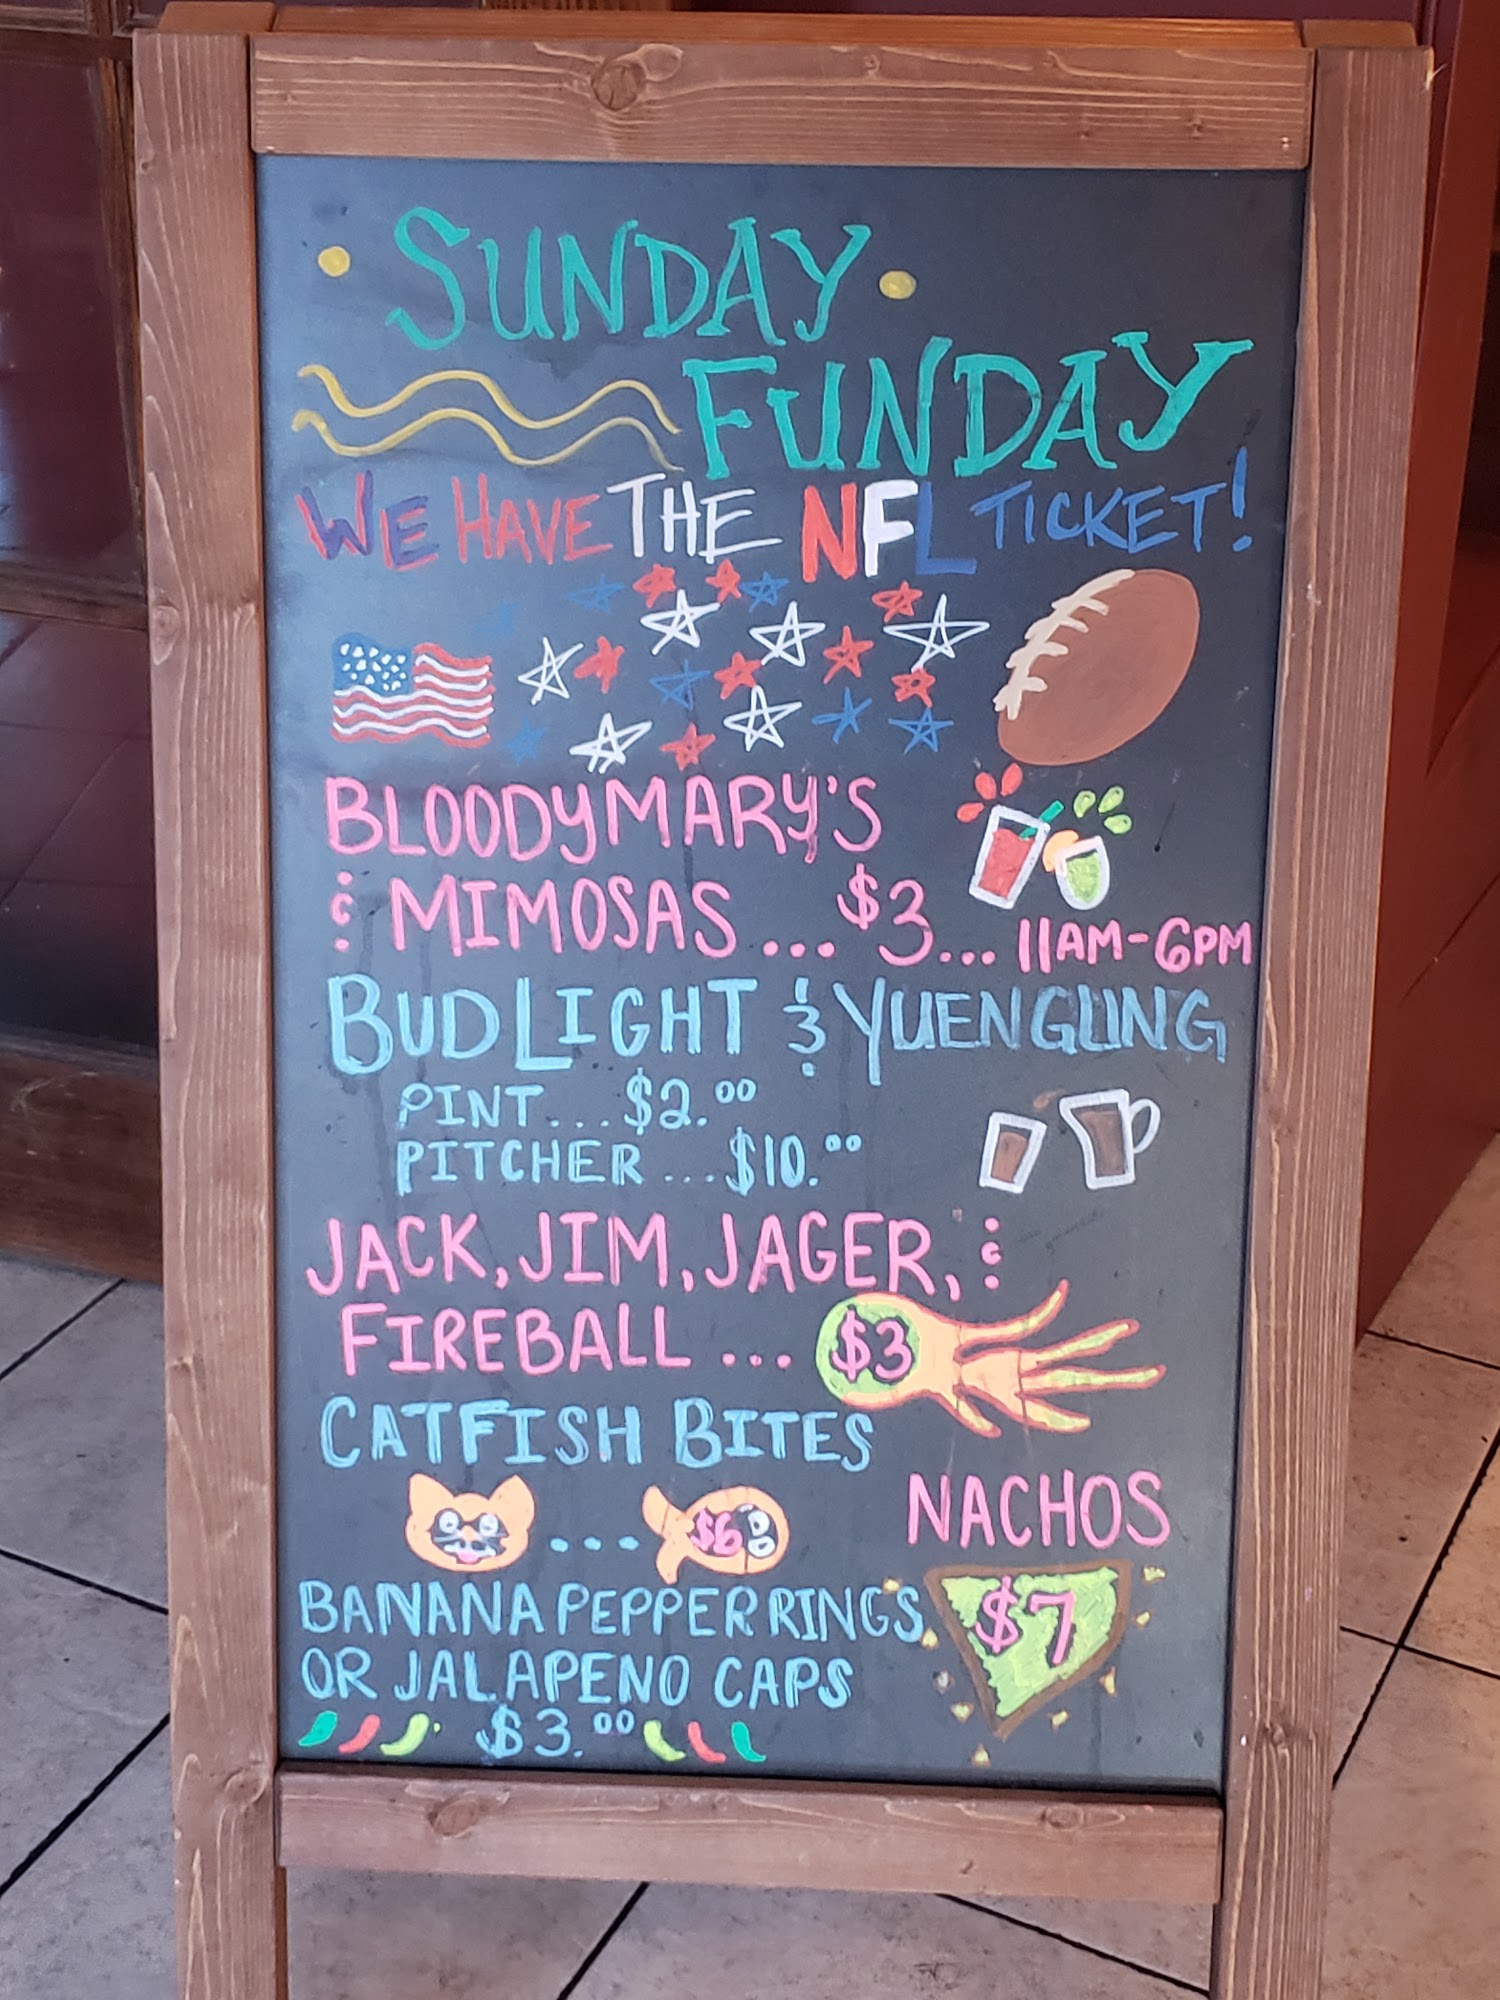 SUNDAY
FUNDAY
WE HAVE THE NFL TICKET!
BLOODYMARY'S
& MIMOSAS ... $3 ... 11AM-6PM
BUD LIGHT & YUENGLING
PINT ... $2.00
PITCHER ... $10.00
JACK, JIM, JAGER, &
FIREBALL ... $3
CATFISH BITES
... $6
NACHOS
$7
BANANA PEPPER RINGS
OR JALAPENO CAPS
$3.00